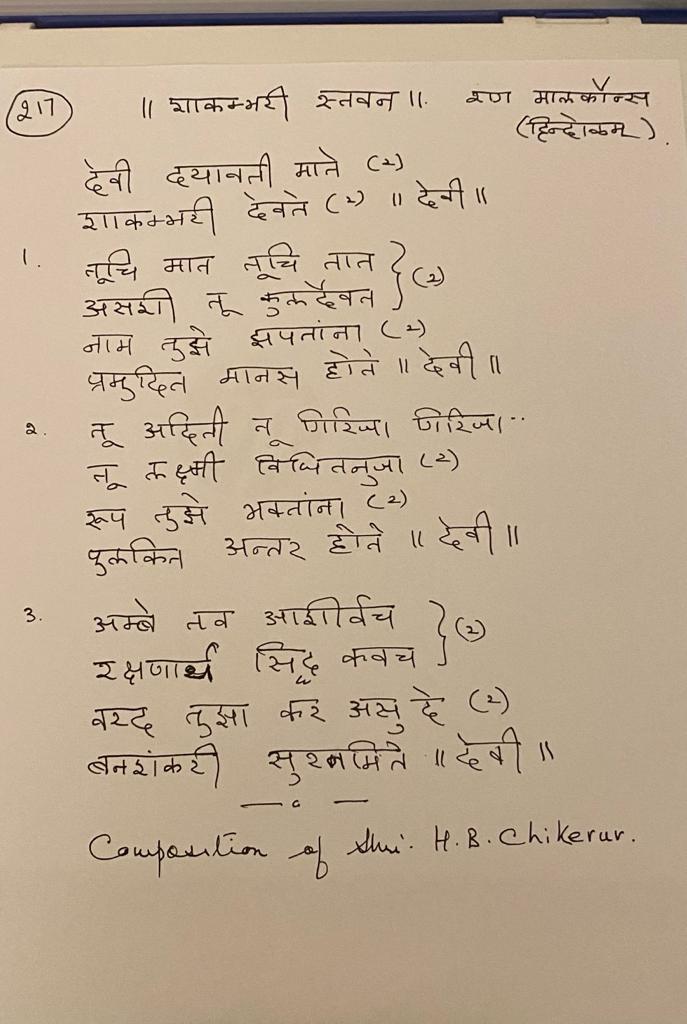 217 ॥ शाकम्भरी स्तवन ॥. राग मालकौन्स
(हिन्दोळम).
देवी दयावती माते (२)
शाकम्भरी देवते (२) ॥ देवी ॥
1. तूचि मात तूचि तात
असशी तू कुलदैवत } (२)
नाम तुझे झपतांना (२)
प्रमुदित मानस होते ॥ देवी ॥
2. तू अदिती तू गिरिजा गिरिजा..
तू लक्ष्मी विधितनुजा (२)
रूप तुझे भक्तांना (२)
पुलकित अन्तर होते ॥ देवी ॥
3. अम्बे तव आशीर्वच
रक्षणार्थ सिद्ध कवच } (२)
वरद तुझा कर असु दे (२)
बनशंकरी सुरनमिते ॥ देवी ॥
— ० —
Composition of Shri. H.B. Chikerur.